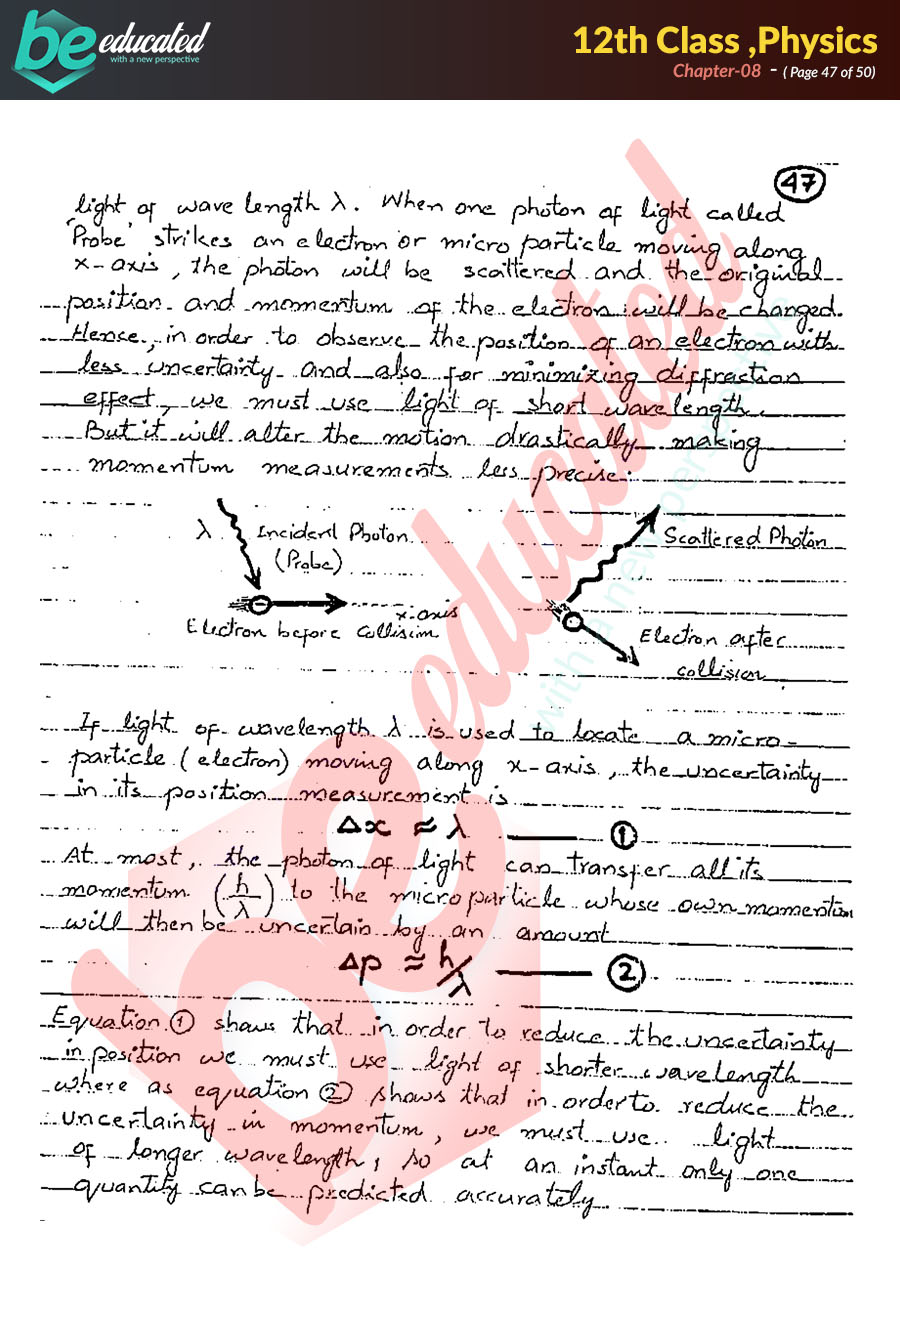 be educated
with a new perspective
12th Class ,Physics
Chapter-08 - ( Page 47 of 50)
47
light of wave length λ. When one photon of light called
'Probe' strikes an electron or micro particle moving along
x-axis, the photon will be scattered and the original
position and momentum of the electron will be changed.
Hence, in order to observe the position of an electron with
less uncertainty and also for minimizing diffraction
effect, we must use light of short wave length.
But it will alter the motion drastically making
momentum measurements less precise.
λ Incident Photon
(Probe)
Scattered Photon
x-axis
Electron before Collision
Electron after
collision
If light of wavelength λ is used to locate a micro-
particle (electron) moving along x-axis, the uncertainty
in its position measurement is
Δx ≈ λ ——— ①
At most, the photon of light can transfer all its
momentum (h/λ) to the microparticle whose own momentum
will then be uncertain by an amount
Δp ≈ h/λ ——— ②
Equation ① shows that in order to reduce the uncertainty
in position we must use light of shorter wavelength
where as equation ② shows that in order to reduce the
uncertainty in momentum, we must use light
of longer wavelength, so at an instant only one
quantity can be predicted accurately.
be educated
with a new perspective